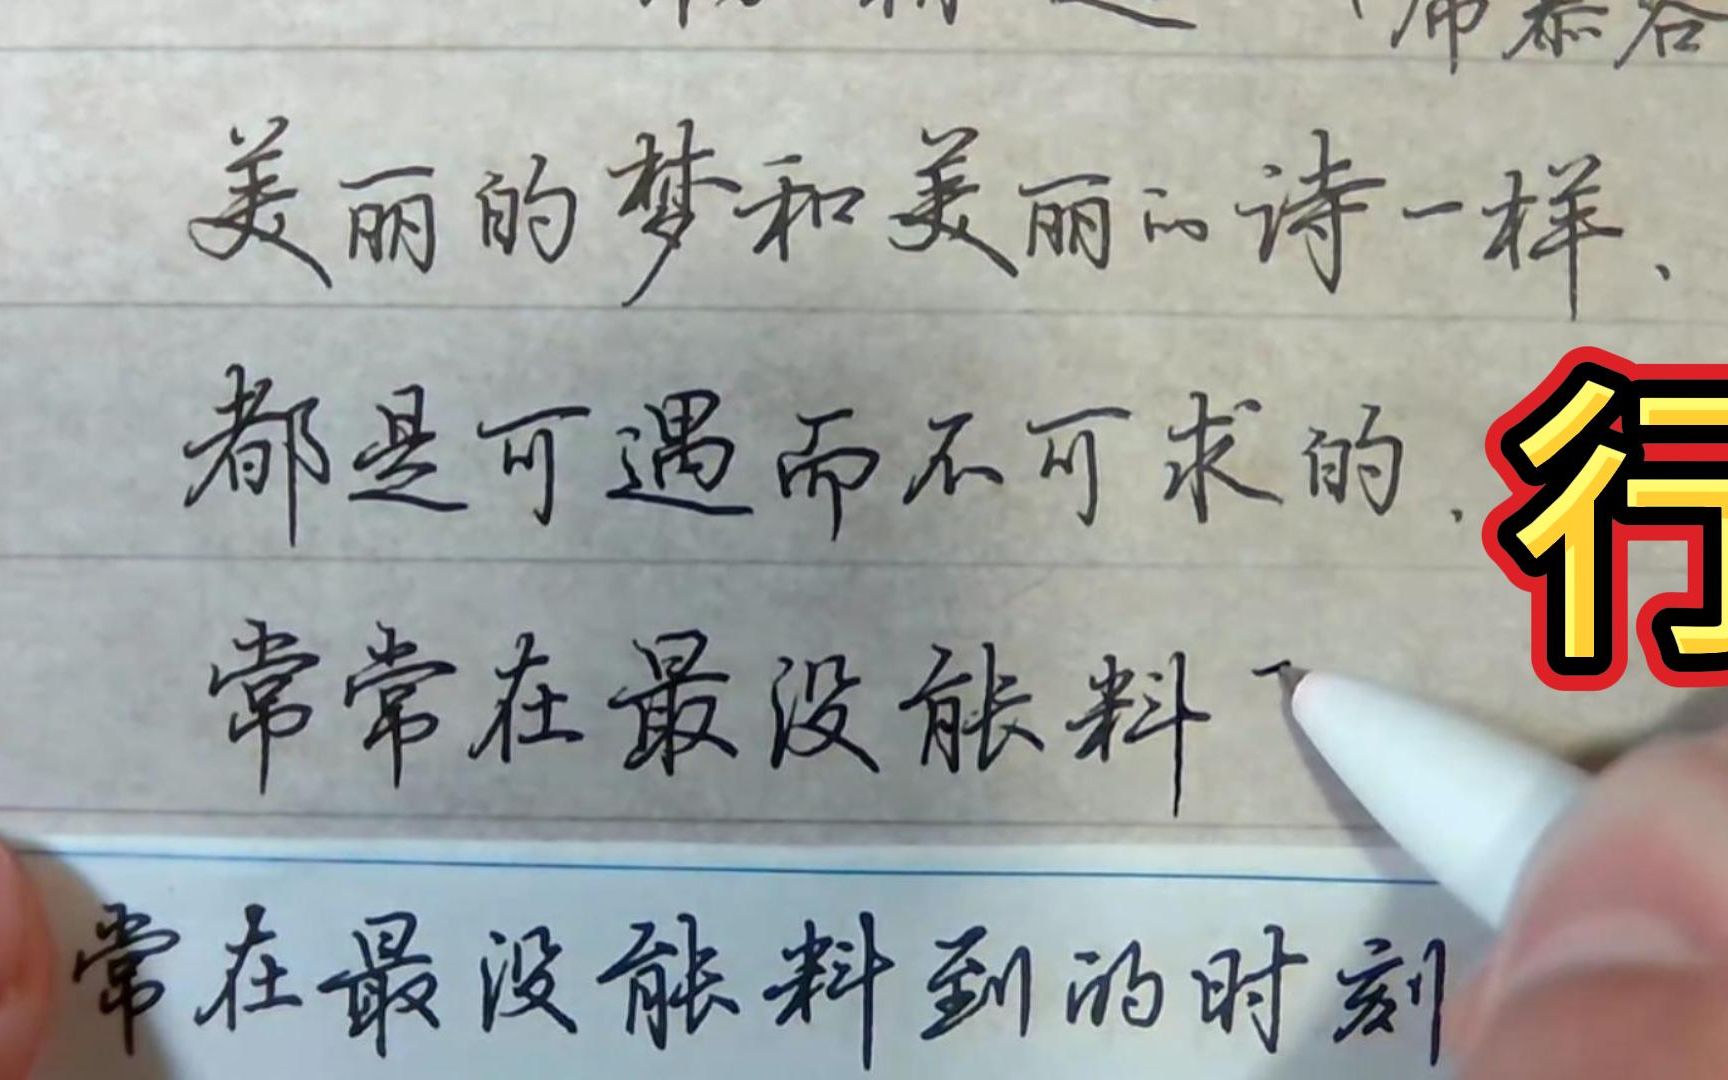 美丽的梦和美丽的诗一样、
都是可遇而不可求的、
行
常常在最没能料
常在最没能料到的时刻